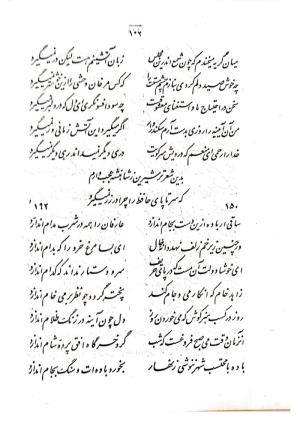 ۱۰۲
میان گریه میخندم که چون شمع اندرین مجلس زبان آتشینم هست لیکن در نمیگیرد
چه خوش صید دلم کردی بنازم چشم مستت را که کس مرغان وحشی را ازین خوشتر نمیگیرد
سخن در احتیاج ما و استغنای معشوقست چه سود افسونگری ای دل که در دلبر نمیگیرد
من آن آیینه را روزی بدست آرم سکندروار اگر میگیرد این آتش زمانی ور نمیگیرد
خدا را رحمی ای منعم که درویش سر کویت دری دیگر نمیداند رهی دیگر نمیگیرد
بدین شعر تر شیرین ز شاهنشه عجب دارم
که سر تا پای حافظ را چرا در زر نمیگیرد
۱۵۰ ۱۶۲
ساقی ار باده ازین دست بجام اندازد عارفان را همه در شرب مدام اندازد
ور چنین زیر خم زلف نهد دانه خال ای بسا مرغ خرد را که بدام اندازد
ای خوشا دولت آن مست که در پای حریف سر و دستار نداند که کدام اندازد
زاهد خام که انکار می و جام کند پخته گردد چو نظر بر می خام اندازد
روز در کسب هنر کوش که می خوردن روز دل چون آینه در زنگ ظلام اندازد
آن زمان وقت می صبح فروغست که شب گرد خرگاه افق پرده شام اندازد
باده با محتسب شهر ننوشی زنهار بخورد باده ات و سنگ بجام اندازد